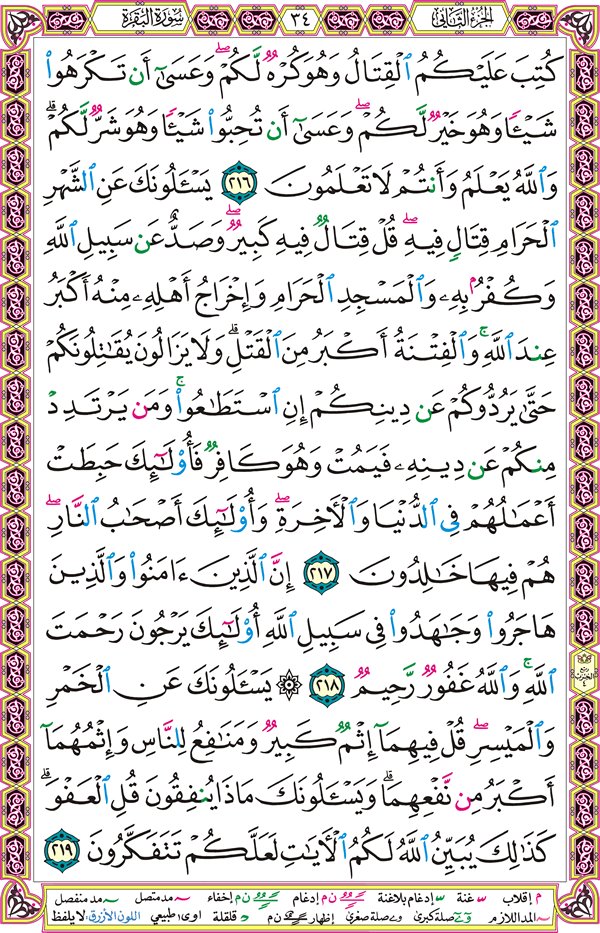 الجزء الثاني ٣٤ سورة البقرة
كُتِبَ عَلَيْكُمُ ٱلْقِتَالُ وَهُوَ كُرْهٌ لَّكُمْ ۖ وَعَسَىٰٓ أَن تَكْرَهُوا۟
شَيْـًٔا وَهُوَ خَيْرٌ لَّكُمْ ۖ وَعَسَىٰٓ أَن تُحِبُّوا۟ شَيْـًٔا وَهُوَ شَرٌّ لَّكُمْ ۗ
وَٱللَّهُ يَعْلَمُ وَأَنتُمْ لَا تَعْلَمُونَ ٢١٦ يَسْـَٔلُونَكَ عَنِ ٱلشَّهْرِ
ٱلْحَرَامِ قِتَالٍ فِيهِ ۖ قُلْ قِتَالٌ فِيهِ كَبِيرٌ ۖ وَصَدٌّ عَن سَبِيلِ ٱللَّهِ
وَكُفْرٌۢ بِهِۦ وَٱلْمَسْجِدِ ٱلْحَرَامِ وَإِخْرَاجُ أَهْلِهِۦ مِنْهُ أَكْبَرُ
عِندَ ٱللَّهِ ۚ وَٱلْفِتْنَةُ أَكْبَرُ مِنَ ٱلْقَتْلِ ۗ وَلَا يَزَالُونَ يُقَـٰتِلُونَكُمْ
حَتَّىٰ يَرُدُّوكُمْ عَن دِينِكُمْ إِنِ ٱسْتَطَـٰعُوا۟ ۚ وَمَن يَرْتَدِدْ
مِنكُمْ عَن دِينِهِۦ فَيَمُتْ وَهُوَ كَافِرٌ فَأُو۟لَـٰٓئِكَ حَبِطَتْ
أَعْمَـٰلُهُمْ فِى ٱلدُّنْيَا وَٱلْـَٔاخِرَةِ ۖ وَأُو۟لَـٰٓئِكَ أَصْحَـٰبُ ٱلنَّارِ ۖ
هُمْ فِيهَا خَـٰلِدُونَ ٢١٧ إِنَّ ٱلَّذِينَ ءَامَنُوا۟ وَٱلَّذِينَ
هَاجَرُوا۟ وَجَـٰهَدُوا۟ فِى سَبِيلِ ٱللَّهِ أُو۟لَـٰٓئِكَ يَرْجُونَ رَحْمَتَ
ٱللَّهِ ۚ وَٱللَّهُ غَفُورٌ رَّحِيمٌ ٢١٨ ۞ يَسْـَٔلُونَكَ عَنِ ٱلْخَمْرِ
وَٱلْمَيْسِرِ ۖ قُلْ فِيهِمَآ إِثْمٌ كَبِيرٌ وَمَنَـٰفِعُ لِلنَّاسِ وَإِثْمُهُمَآ
أَكْبَرُ مِن نَّفْعِهِمَا ۗ وَيَسْـَٔلُونَكَ مَاذَا يُنفِقُونَ قُلِ ٱلْعَفْوَ ۗ
كَذَٰلِكَ يُبَيِّنُ ٱللَّهُ لَكُمُ ٱلْـَٔايَـٰتِ لَعَلَّكُمْ تَتَفَكَّرُونَ ٢١٩
م إقلاب س غنة س إدغام بلاغنة ن م إدغام ن م إخفاء ~ مد متصل ~ مد منفصل
~ المد اللازم و ے صلة كبرى و ے صلة صغرى إظهار ن م د قلقلة اوى طبيعي اللون الأزرق: لا يلفظ